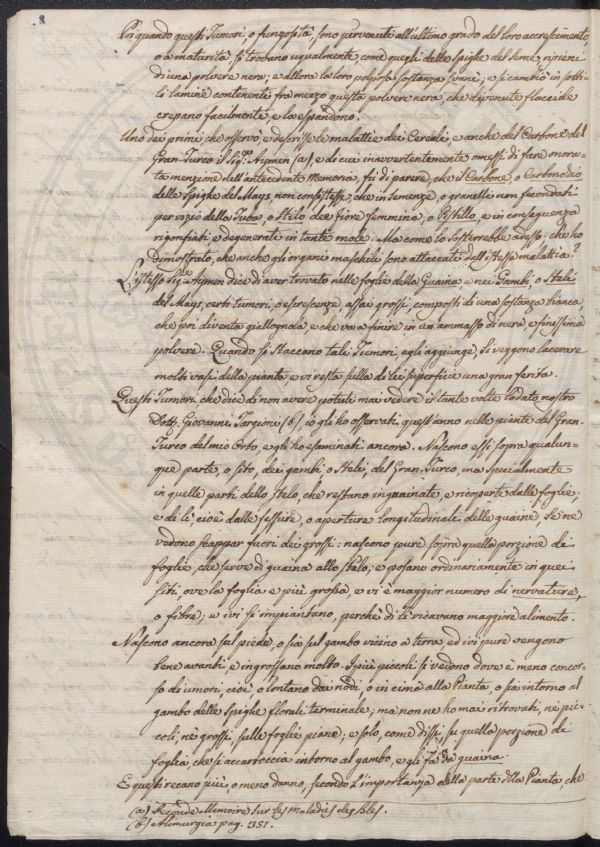 8
Poi quando questi Tumori, o fungosità, sono pervenuti all'ultimo grado del loro accrescimento,
o a maturità si trovano ugualmente, come quegli delle Spighe del Seme, ripieni
di una polvere nera; e allora la loro polposa sostanza svanì, e si cambiò in sotti-
li lamine contenenti fra mezzo questa polvere nera, che divenute flaccide
crepano facilmente, e la espandono.
Uno dei primi che osservò, e descrisse le malattie dei Cereali, e anche del Carbone del
Gran-Turco il Sig.r Aymen (a), e di cui inavvertentemente omessi di fare onora-
ta menzione nell'antecedente Memoria, fu di parere, che il Carbone, o Carbonchio
delle Spighe del Mays, non consistesse, che in semenze, o granelli non fecondati
per vizio della Tuba, o Stilo del fiore femmina, o Pistillo, e in conseguenza
rigonfiati, e degenerati in tante mole. Ma come lo sosterrebbe adesso, che ho
dimostrato, che anche gli organi maschili sono attaccati dall'istessa malattia?
L'istesso Sig.r Aymen dice di aver trovato nelle foglie della Guaina, e nei Gambi, o Steli
del Mays, certi tumori, o escrescenze, assai grossi, composti di una sostanza bianca,
che poi diventa giallognola, e che va a finire in un ammasso di nera, e finissima
polvere. Quando si staccano tali Tumori, egli aggiunge, si veggono lacerare
molti vasi della pianta, e vi resta sulla di lei superficie una gran ferita.
Questi Tumori, che dice di non avere potuti mai vedere il tante volte lodato nostro
Dott. Giovanni Targioni (b), io gli ho osservati quest'anno nelle piante del Gran-
Turco del mio Orto, e gli ho esaminati ancora. Nascono essi sopra qualun-
que parte, o sito, dei gambi, o Steli, del Gran-Turco, ma specialmente
in quelle parti dello Stelo, che restano inguainate, e ricoperte dalle foglie;
e di lì, cioè dalle fessure, o aperture longitudinali delle guaine, se ne
vedono scappar fuori dei grossi: nascono pure sopra quella porzione di
foglia, che serve di guaina allo Stelo; e posano ordinariamente in quei
siti, ove la foglia è più grossa, e vi è maggior numero di nervature,
o fibre; e ivi si impiantano, perchè di lì ricavano maggiore alimento.
Nascono ancora sul piede, o sia sul gambo vicino a terra, ed ivi pure vengono
bene avanti, e ingrossano molto. I più piccoli si vedono dove è meno concor-
so di umori, cioè, o lontano dai nodi, o in cima alla Pianta, o sia intorno al
gambo delle Spighe florali terminale; ma non ne ho mai ritrovati, nè pic-
coli, nè grossi sulle foglie piane; e solo, come dissi, su quella porzione di
foglia, che si accartoccia intorno al gambo, e gli fa da guaina.
E questi recano più, o meno danno, secondo l'importanza della parte della Pianta, che
(a) Seconde Memoire sur les maladies des Bles.
(b) Alimurgia pag. 351.